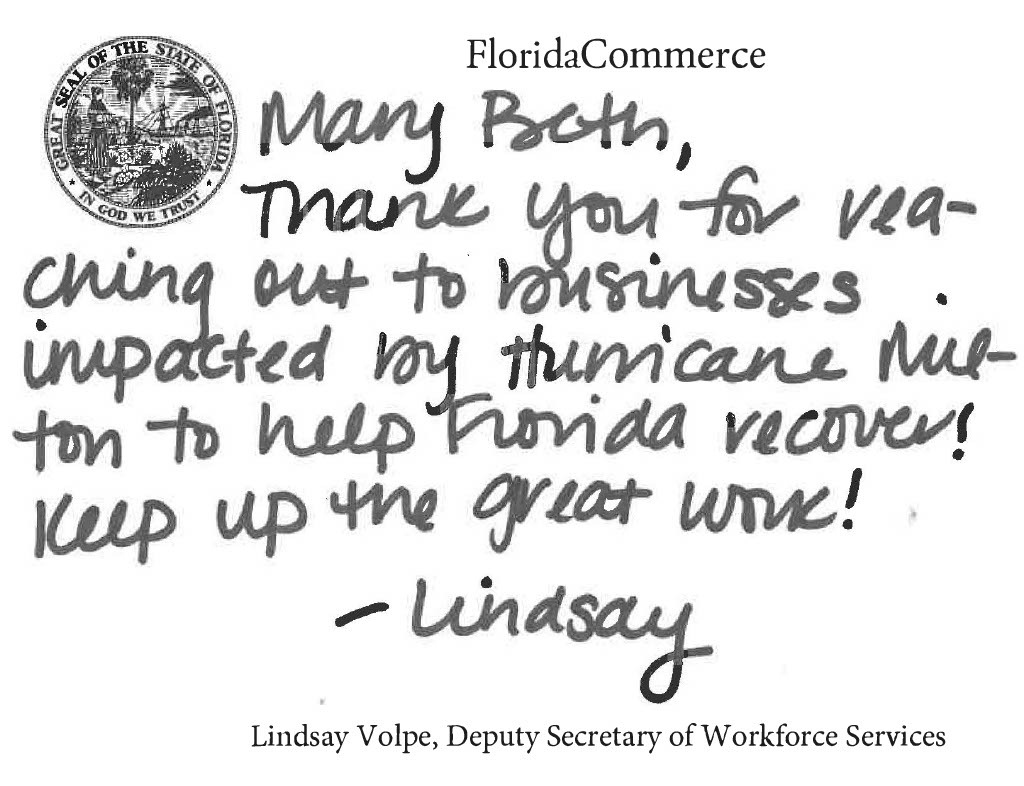 FloridaCommerce
GREAT SEAL OF THE STATE OF FLORIDA
IN GOD WE TRUST
Mary Beth,
Thank you for rea-
ching out to businesses
impacted by Hurricane Mil-
ton to help Florida recover!
Keep up the great work!
- Lindsay
Lindsay Volpe, Deputy Secretary of Workforce Services